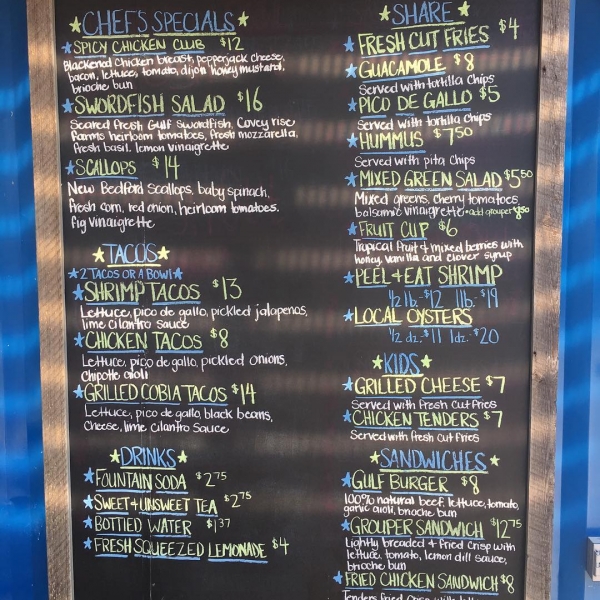 CHEF'S SPECIALS
SPICY CHICKEN CLUB $12
Blackened chicken breast, pepperjack cheese,
bacon, lettuce, tomato, dijon honey mustard,
brioche bun
SWORDFISH SALAD $16
Seared fresh Gulf swordfish, Covey rise
Farms heirloom tomatoes, fresh mozzarella,
fresh basil, lemon vinaigrette
SCALLOPS $14
New Bedford scallops, baby spinach,
fresh corn, red onion, heirloom tomatoes,
fig vinaigrette
TACOS
2 TACOS OR A BOWL
SHRIMP TACOS $13
Lettuce, pico de gallo, pickled jalapenos,
lime cilantro sauce
CHICKEN TACOS $8
Lettuce, pico de gallo, pickled onions,
Chipotle aioli
GRILLED COBIA TACOS $14
Lettuce, pico de gallo, black beans,
Cheese, lime cilantro sauce
DRINKS
FOUNTAIN SODA $2.75
SWEET & UNSWEET TEA $2.75
BOTTLED WATER $1.37
FRESH SQUEEZED LEMONADE $4
SHARE
FRESH CUT FRIES $4
GUACAMOLE $8
Served with tortilla chips
PICO DE GALLO $5
Served with tortilla chips
HUMMUS $7.50
Served with pita chips
MIXED GREEN SALAD $5.50
Mixed greens, cherry tomatoes
balsamic vinaigrette • add grouper $8.50
FRUIT CUP $6
Tropical fruit & mixed berries with
honey, vanilla and clover syrup
PEEL & EAT SHRIMP
1/2 lb. $12 1lb. $19
LOCAL OYSTERS
1/2 dz. $11 1dz. $20
KIDS
GRILLED CHEESE $7
Served with fresh cut fries
CHICKEN TENDERS $7
Served with fresh cut fries
SANDWICHES
GULF BURGER $8
100% natural beef, lettuce, tomato,
garlic aioli, brioche bun
GROUPER SANDWICH $12.75
Lightly breaded & fried crisp with
lettuce, tomato, lemon dill sauce,
brioche bun
FRIED CHICKEN SANDWICH $8
Tenders fried crisp with